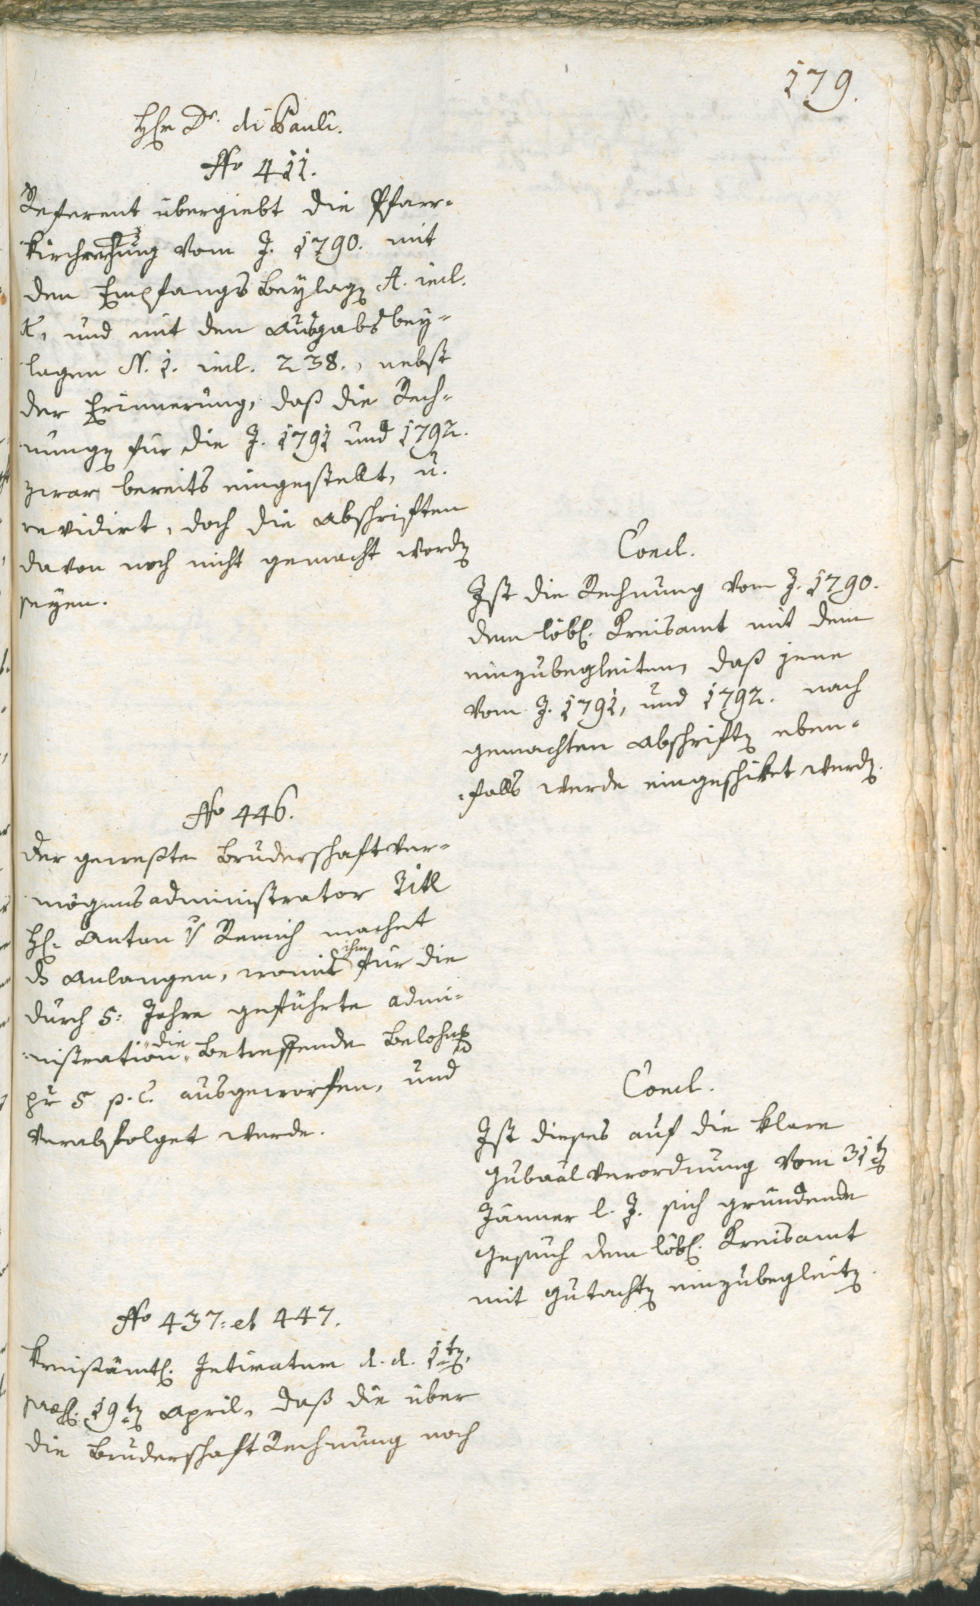 179.
Hr Dr. di Pauli.
No 411.
Referent übergiebt die Pfarr-
kirchrechnung vom J. 1790. mit
den Empfangs Beylagen A. incl.
und mit den Ausgabsbey-
lagen N. 1. incl. 238., nebst
der Erinnerung, daß die Rech-
nungen für die J. 1791 und 1792.
zwar bereits eingestellt, u.
revidirt, doch die Abschriften
davon noch nicht gemacht worden
seyen.
Concl.
Ist die Rechnung vom J. 1790.
dem löbl. Kreisamt mit dem
einzubegleiten, daß jene
vom J. 1791, und 1792. nach
gemachten Abschriften eben-
falls werde eingeschikt werden.
No 446.
Der geweßte Bruderschaftver-
mögensadministrator Titl
H. Anton v Remich machet
ds Anlangen, womit ihm für die
durch 5: Jahre geführte Admi-
nistration die betreffende Belohnung
pr 5 p. C. ausgeworfen, und
verabfolget werde.
Concl.
Ist dieses auf die klare
Gubaalverordnung vom 31ten
Jänner l. J. sich gründende
Gesuch dem löbl. Kreisamt
mit Gutachten einzubegleiten.
No 437. et 447.
Kreisämtl. Intimatum d. d. 1ten,
praes. 19ten April, daß die über
die Bruderschaft Rechnung noch